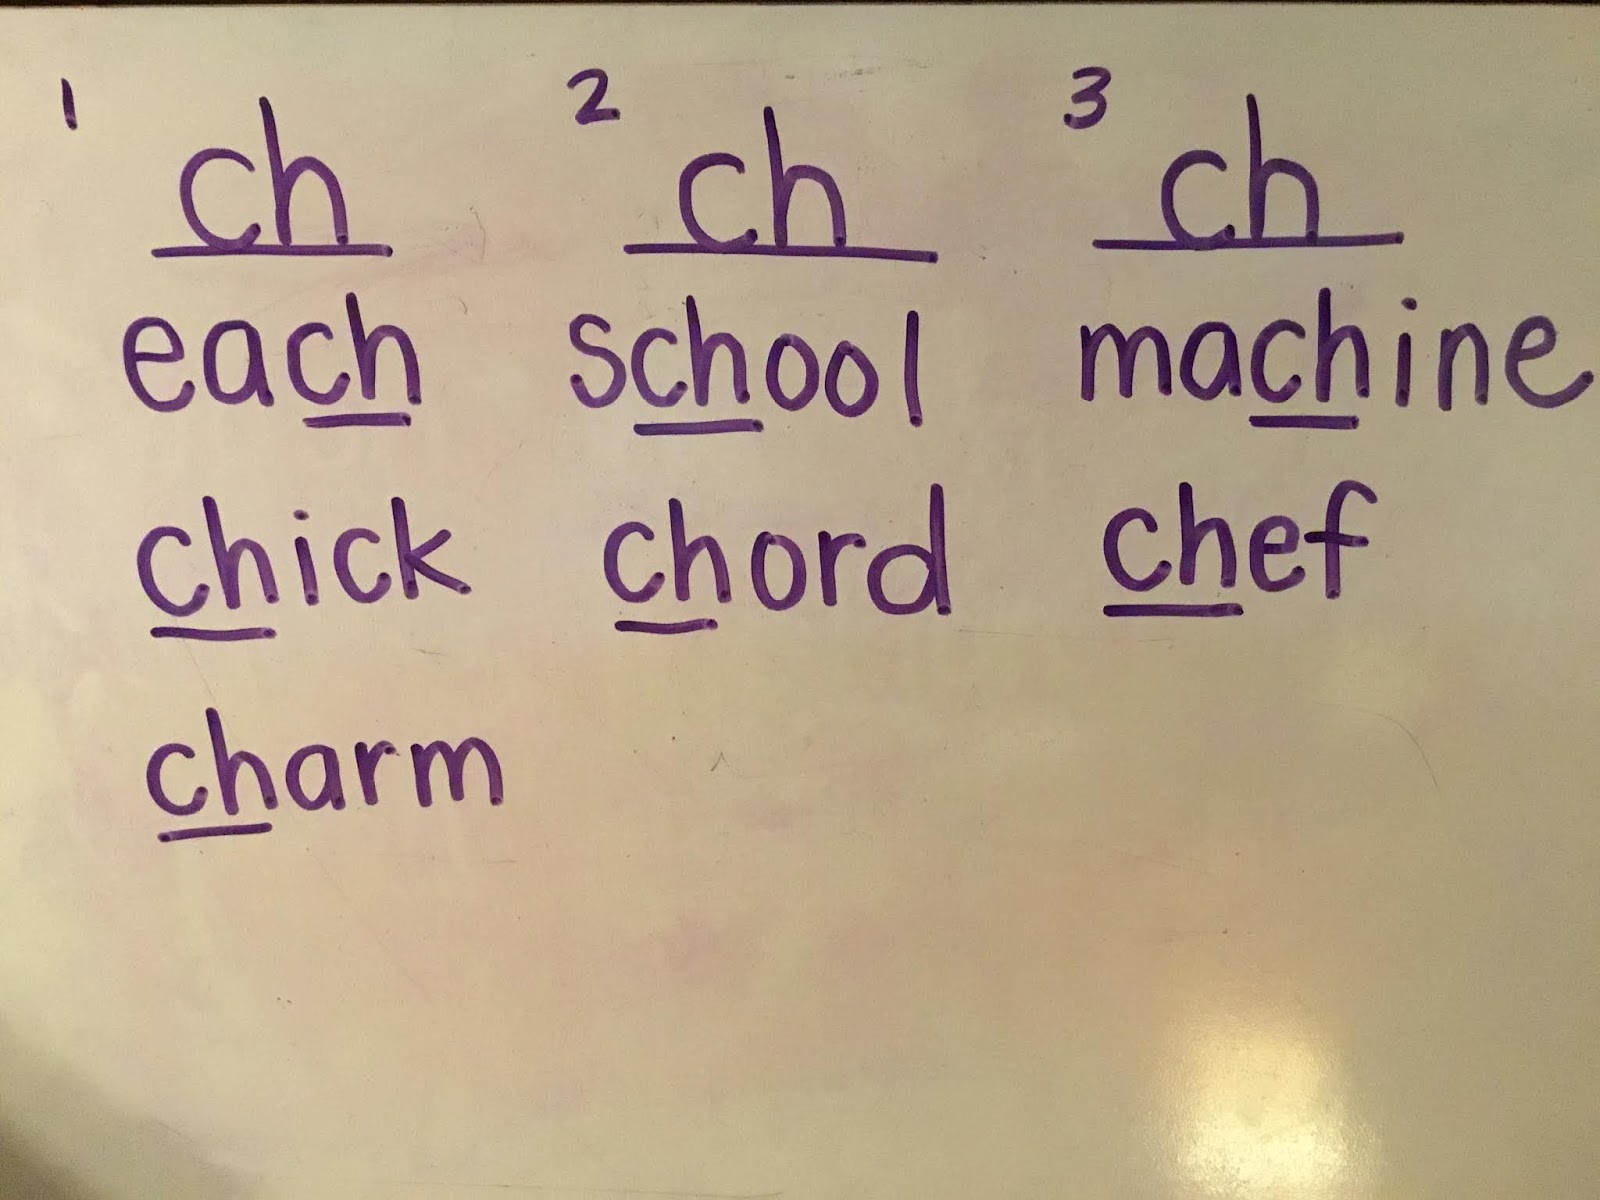 1 2 3
ch ch ch
each school machine
chick chord chef
charm